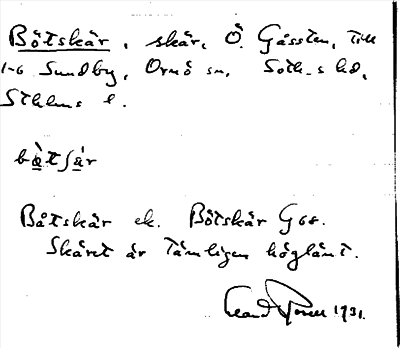 Bötskär, skär, Ö. Gåssten, till
1-6 Sundby, Ornö sn, Soth-s hd,
Sthlms l.
bö̀tʃä́r
Båtskär ek. Bötskär G 68.
Skäret är tämligen höglänt.
1931.